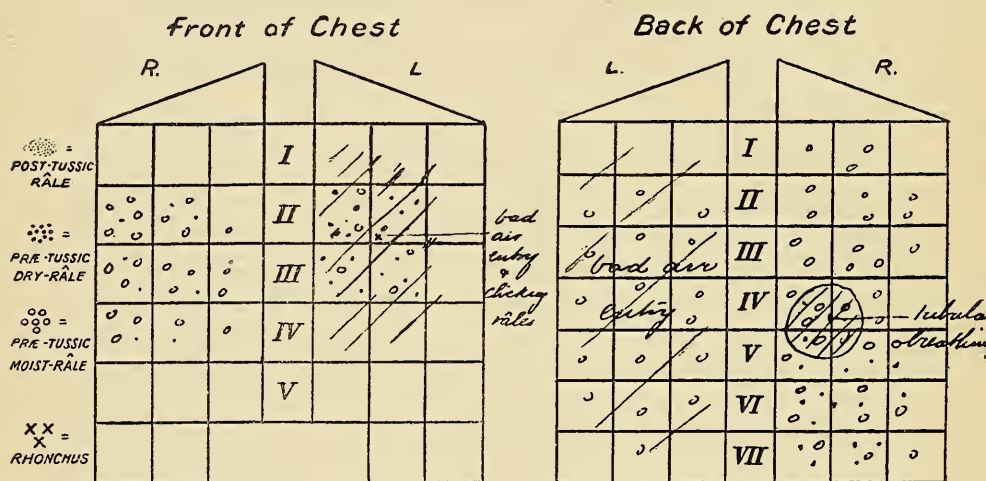 Front of Chest
R.
L
I
II
III
IV
V
POST-TUSSIC
RÂLE
=
PRÆ-TUSSIC
DRY-RÂLE
=
PRÆ-TUSSIC
MOIST-RÂLE
=
RHONCHUS
=
bad
air
entry
&
clicking
râles
Back of Chest
L.
R.
I
II
III
IV
V
VI
VII
bad air
entry
tubula
breathing